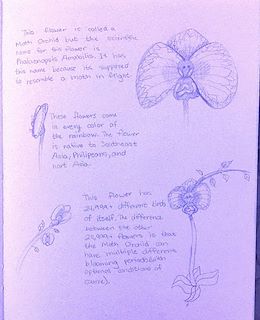 This flower is called a
Moth Orchid but the scientific
name for this flower is
Phalaenopsis Amabilis. It has
this name because its supposed
to resemble a moth in flight
These flowers come
in every color of
the rainbow. The flower
is native to Southeast
Asia, Philipeans, and
nort Asia.
This flower has
24,999+ different kinds
of itself. The difference
between the other
25,000+ flowers is that
the Moth Orchid can
have multiple different
blooming periods (with
optimal conditions of
course).